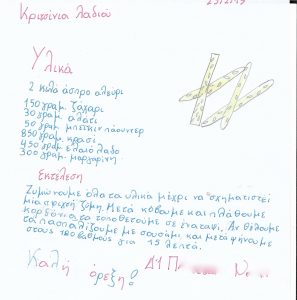 Κριτσίνια λαδιού
Υλικά
2 κιλά άσπρο αλεύρι
150 γραμ. ζάχαρι
30 γραμ. αλάτι
50 γραμ. μπέϊκιν πάουντερ
850 γραμ. κρασί
450 γραμ. ελαιόλαδο
300 γραμ. μαργαρίνη
Εκτέλεση
Ζυμώνουμε όλα τα υλικά μέχρι να σχηματιστεί
μια σφιχτή ζύμη. Μετά κόβουμε και πλάθουμε
κορδόνια τα τοποθετούμε σε ένα ταψί. Αν θέλουμε
τα πασπαλίζουμε με σουσάμι και μετά ψήνουμε
στους 180 βαθμούς για 15 λεπτά.
Καλή όρεξη! Δ1